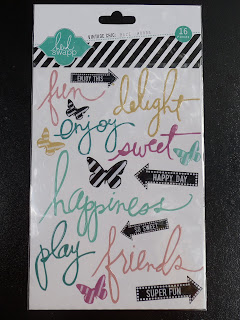 heidi swapp
VINTAGE CHIC
16
ENJOY THIS
fun
delight
enjoy
sweet
HAPPY DAY
happiness
SO SWEET
play
friends
SUPER FUN